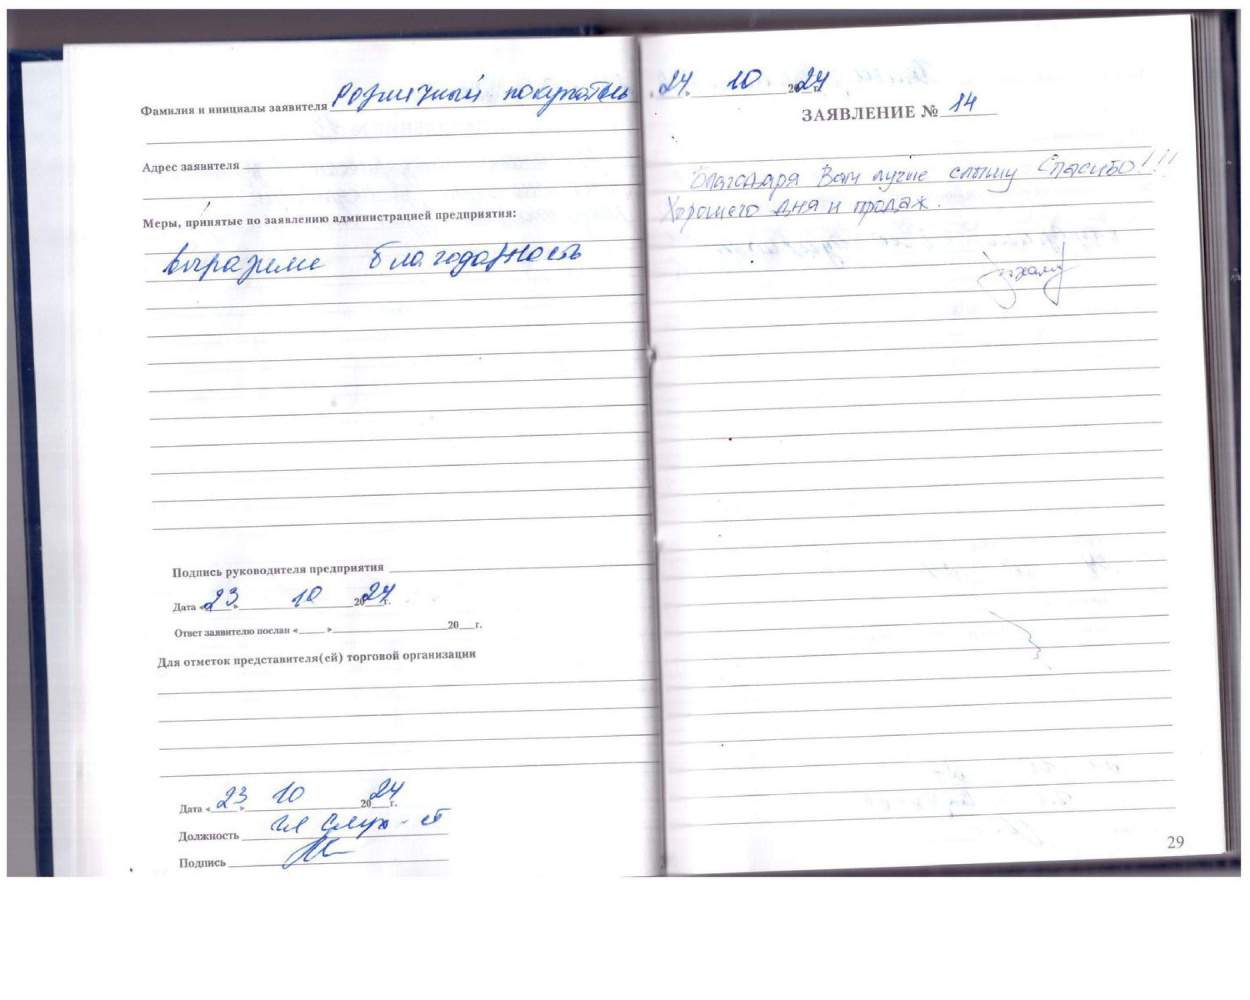 Фамилия и инициалы заявителя Розничный покупатель
Адрес заявителя
Меры, принятые по заявлению администрацией предприятия:
выражение благодарность
Подпись руководителя предприятия
Дата « 23 » 10 2024 г.
Ответ заявителю послан « » 20 г.
Для отметок представителя(ей) торговой организации
Дата « 23 » 10 2024 г.
Должность
Подпись
24. 10 2024 г.
ЗАЯВЛЕНИЕ № 14
благодаря Вам лучше слышу Спасибо!!!
Хорошего дня и продаж.
29